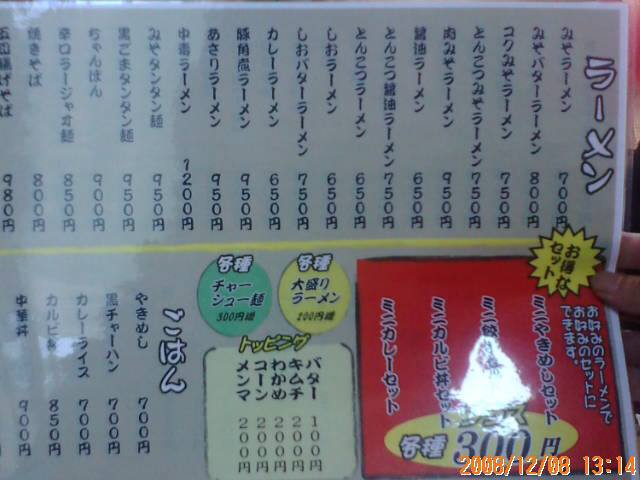 ラーメン
みそラーメン 700円
みそバターラーメン 800円
コクみそラーメン 750円
とんこつみそラーメン 750円
肉みそラーメン 750円
醤油ラーメン 650円
とんこつ醤油ラーメン 750円
とんこつラーメン 650円
しおラーメン 650円
しおバターラーメン 750円
カレーラーメン 650円
豚角煮ラーメン 950円
あさりラーメン 950円
中毒ラーメン 1200円
みそタンタン麺 950円
黒ごまタンタン麺 950円
ちゃんぽん 900円
辛口ラージャオ麺 850円
焼きそば 800円
揚げそば 980円
お得な
セット
お好みのラーメンで
お好みのセットに
できます。
ミニやきめしセット
ミニ餃
ミニカルビ丼セット
ミニカレーセット
プラス
各種 300円
各種
大盛り
ラーメン
200円増
各種
チャー
シュー麺
300円増
トッピング
バター 100円
キムチ 200円
わかめ 200円
コーン 200円
メンマ 200円
ごはん
やきめし 700円
黒チャーハン 700円
カレーライス 700円
カルビ丼 850円
中華丼 900円
2008/12/08 13:14